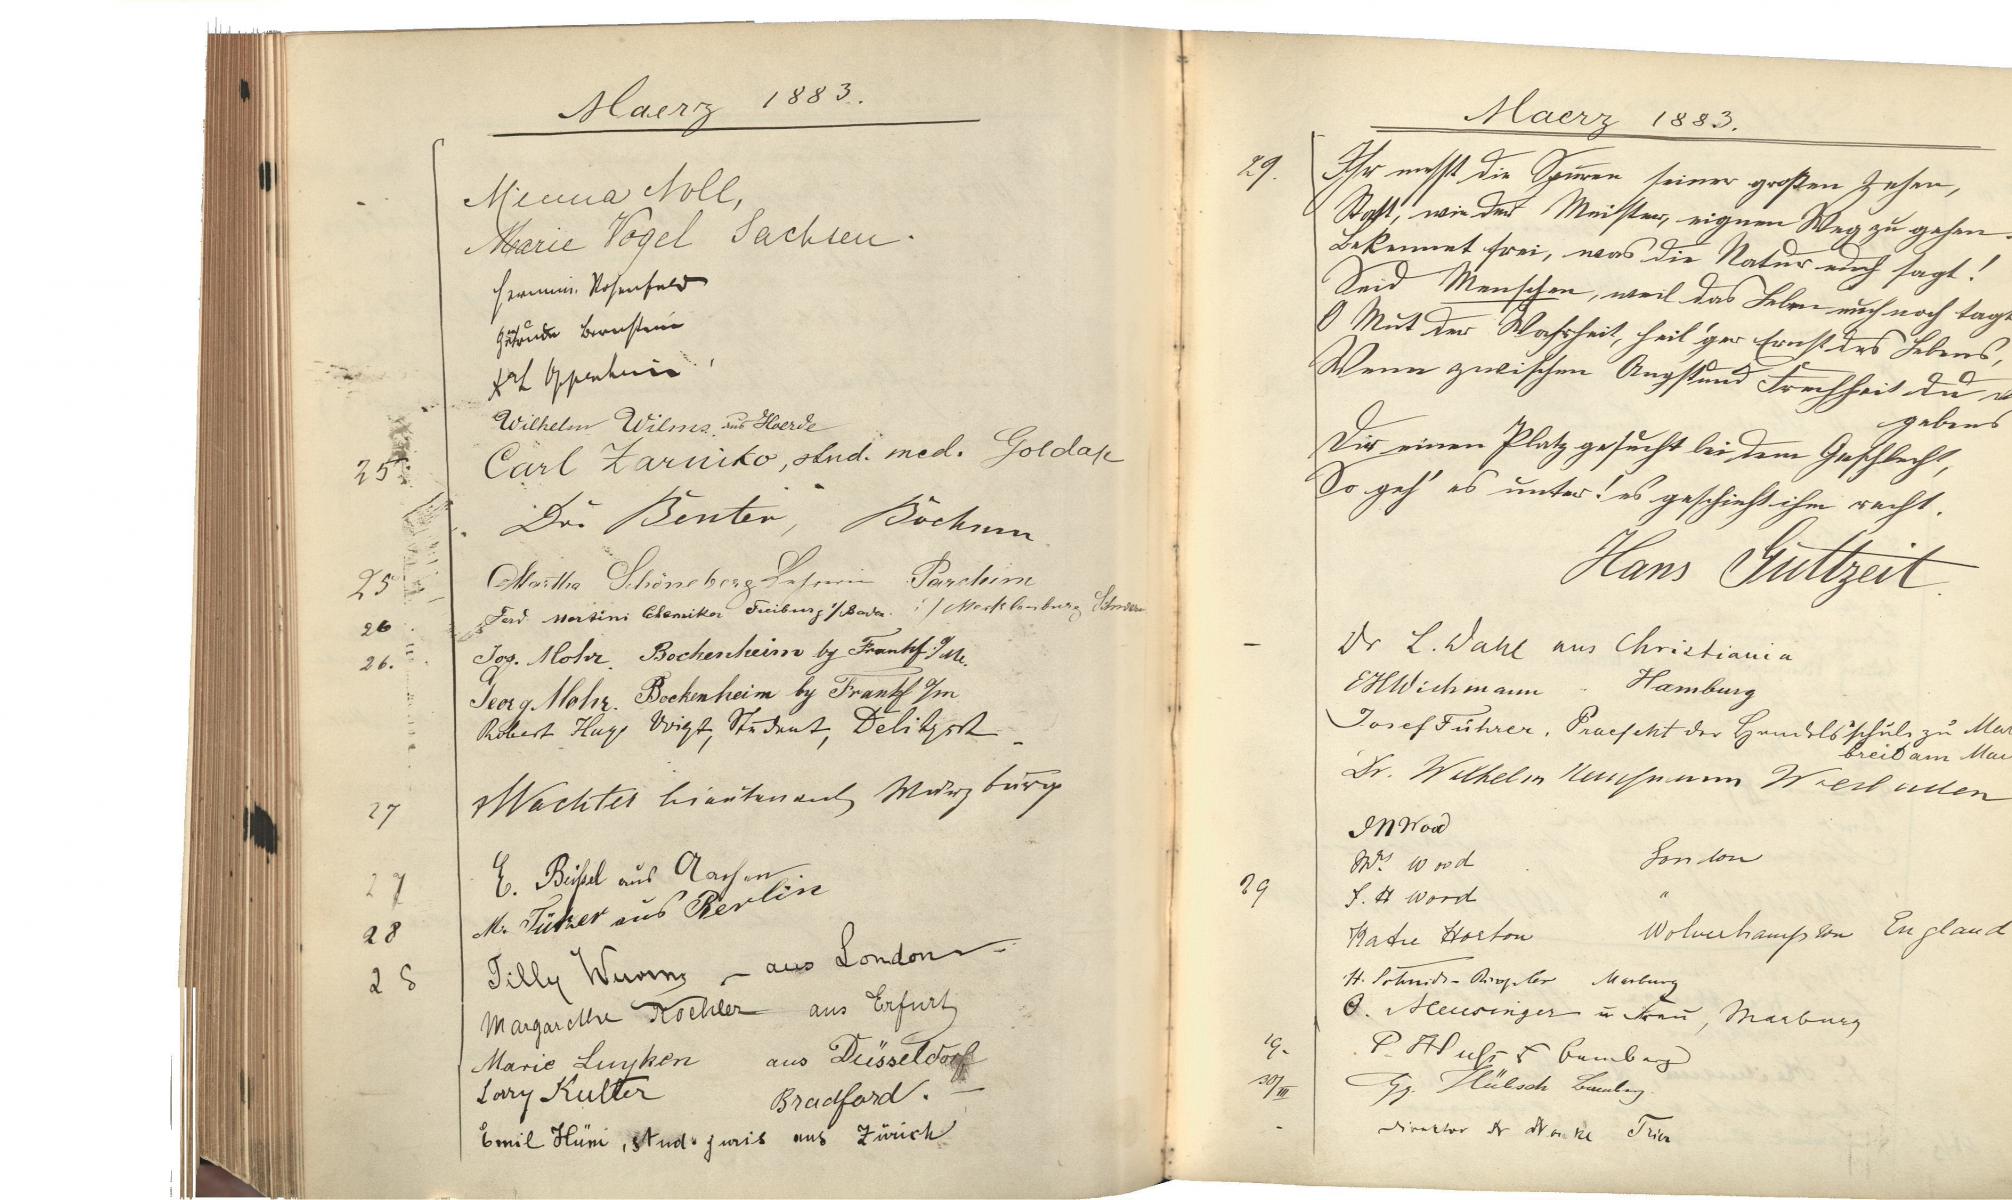 Maerz 1883.
Minna Noll,
Marie Vogel Sachsen.
Hermin. Rosenfeld
Gertrude Bernstein
Oppenheim
Wilhelm Wilms aus Hoerde
25 Carl Zarniko, stud. med. Goldap
Dr. Benter, Bochum
25 Martha Schöneberg Parchim
26 Ferd Martini Chemiker Freiburg i/Baden i/Mecklenburg
26. Jos. Mohr. Bockenheim by Frankf. a/M.
Georg Mohr. Bockenheim by Frankf a/m
Robert Hugo Voigt, Student, Delitzsch
27 Wachter Lieutenant, Würzburg
27 E. Beißel aus Aachen
28 M. Türker aus Berlin
28 Tilly Wurm – aus London
Margarethe Kochler aus Erfurt
Marie Luyken aus Düsseldorf
Lory Kutter Bradford. –
Emil Hüni, stud. juris aus Zürich
Maerz 1883.
29. Ihr meßt die Spuren seiner großen Zehen,
Statt, wie der Meister, eignen Weg zu gehen.
Bekennet frei, was die Natur euch sagt!
Seid Menschen, weil das Leben euch noch tagt
O Mut der Wahrheit, heil'ger Ernst des Lebens,
Wenn zwischen Angst und Frechheit du
gebens
Dir einen Platz gesucht bei dem Geschlecht,
So geh' es unter! es geschieht ihm recht.
Hans Guttzeit
– Dr L. Dahl aus Christiania
EHWichmann Hamburg
Josef Führer, Praefekt der Handelsschule zu Mar
breit am Mai
Dr. Wilhelm Kaufmann Wiesbaden
J N Wood
Mrs. Wood London
29 S. H Wood "
Katie Horton Wolverhampton England
H. Schmidt-Rimpler Marburg
O. Meusinger u Frau, Marburg
19. P. Bamberg
30/III Gg. Hübsch Bamberg.
- Direktor Dr Trier